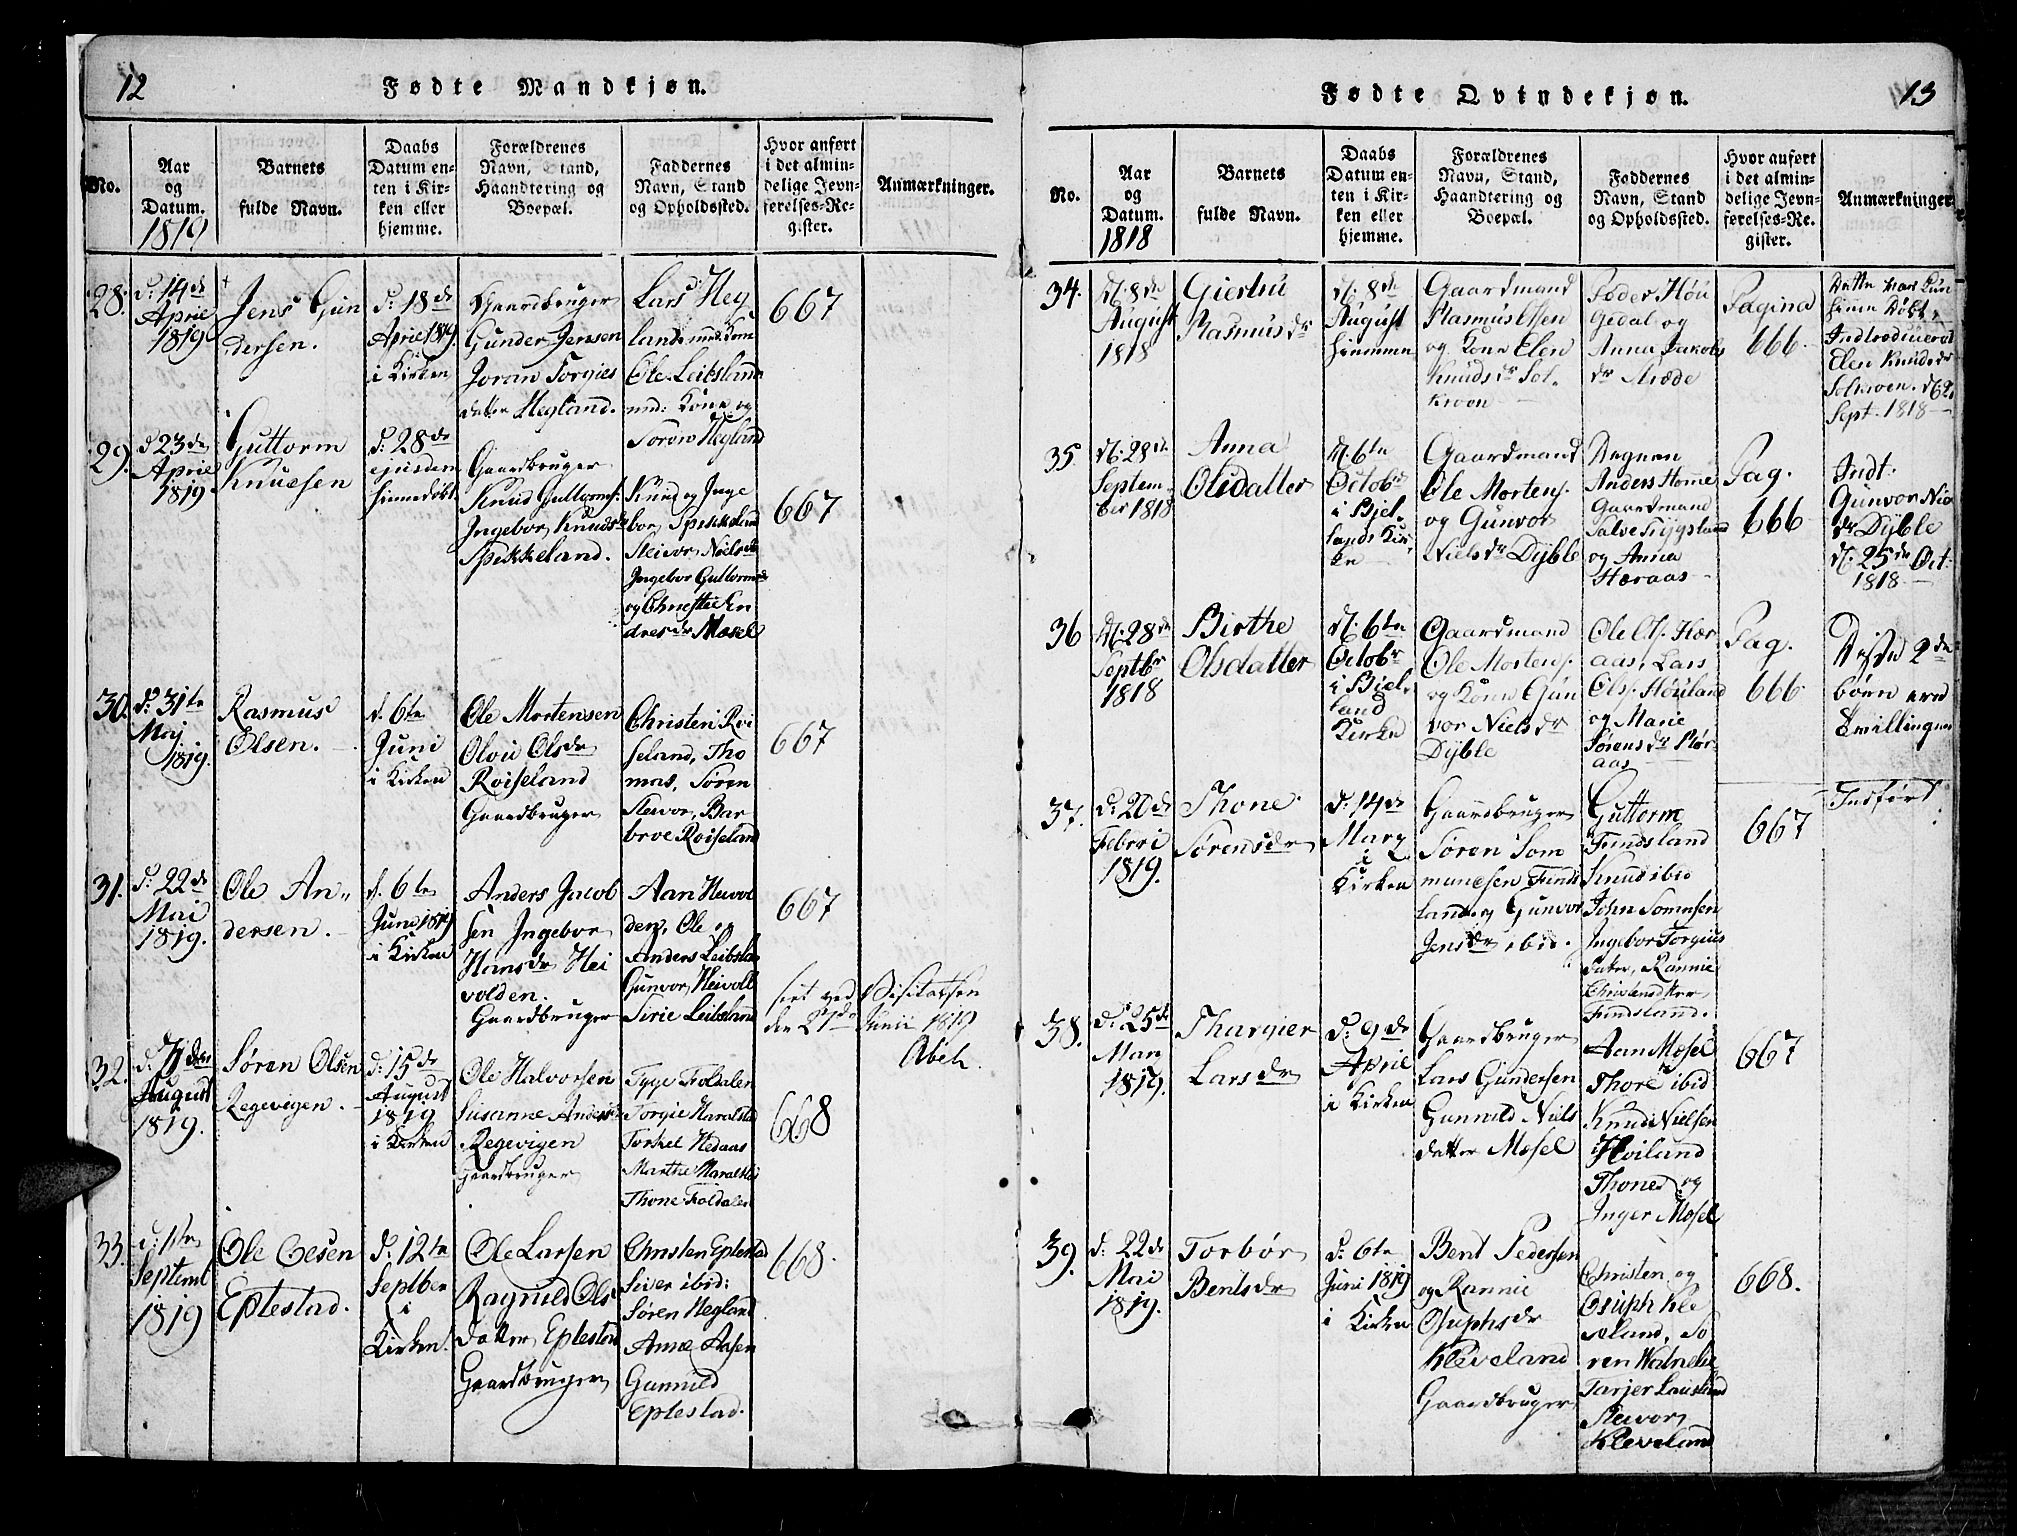 12
Fødte Mandkjøn.
No.
Aar
og
Datum.
1819
Barnets
fulde Navn.
Daabs
Datum en-
ten i Kir-
ken eller
hjemme.
Forældrenes
Navn, Stand,
Haandtering og
Boepæl.
Faddernes
Navn, Stand
og Opholdssted.
Hvor anført
i det almin-
delige Jevn-
førelses-Re-
gister.
Anmærkninger.
28.
d: 14de
April
1819
Jens Gun
dersen.
d: 18de
April 1819.
i Kirken
Gaardbruger
Gunder Jensen
Joran Torgies
datter Hegland.
Lars Heg
land med Kone
Ole Leibsland
med: Kone og
Soren Hegland
667
29.
d 23de
April
1819
Guttorm
Knudsen
d: 28de
ejusdem
hiemmedøbt
Gaardbruger
Knud Guttorms:
Ingebor Knudsdr
Spikkeland.
Knud og Inge
bor Spikkeland
Steivor Nielsdr
Ingebor Guttormsdr
og Christie En
dresdr Mosel
667
30.
d: 31te
Maj
1819.
Rasmus
Olsen.
d. 6te
Juni
i Kirken
Ole Mortensen
Olvie Olsdr
Roiseland
Gaardbruger
Christen Roi
seland, Tho
mas, Soren
Steivor, Bar
broe Roiseland
667
31.
d: 22de
Mai
1819.
Ole An-
dersen.
d. 6te
Juni 1819
i Kirken
Anders Jacob
sen Ingebor
Hansdr Hei
volden.
Gaardbruger
Aan Heivol
den, Ole og
Anders Leibsla
Gunvor Heivoll
Sirie Leibsland
667
seet ved Visitatsen
den 27de Junii 1819
Abel.
32.
August
1819.
Søren Olsen
Regevigen.
d: 15de
August
1819
i Kirken
Ole Halvorsen
Susanne Andersdr
Regevigen
Gaardbruger
Tyge Foldalen
Torgie Haralstad
Torkel Hedaas
Marthe Haralstad
Thone Foldalen
668
33.
d: 1ste
Septemb
1819
Ole Olesen
Eptestad.
d: 12te
Septber
i
Kirken.
Ole Larsen
Ragnild Ols
datter Eptestad
Gaardbruger
Christen Eptestad
Siver ibid:
Søren Hegland
Anne Aasen
Gunnild
Eptestad.
668.
13
Fødte Qvindekjøn.
No.
Aar
og
Datum.
1818
Barnets
fulde Navn.
Daabs
Datum en-
ten i Kir-
ken eller
hjemme.
Forældrenes
Navn, Stand,
Haandtering og
Boepæl.
Faddernes
Navn, Stand
og Opholdssted.
Hvor anført
i det almin-
delige Jevn-
førelses-Re-
gister.
Anmærkninger
34.
d. 8de
August
1818
Giertru
Rasmusdr
d. 8de
August
hiemme
Gaardmand
Rasmus
og Kone Elen
Knudsdr Sol-
kroon
Peder Høu
gedal og
Anna Jakobs
dr Mæde
Pagina
666
Dette har
hiemme Døbt.
Introduceret
Elen Knudsdr
Solkroen. d. 6
Sept. 1818
35
d. 28de
Septem-
ber 1818
Anna
Olsdatter
d. 6te
Octobr
i Biel-
lands Kir-
ke
Gaardmand
Ole Mortens.
og Gunvor
Nielsdr Dyble
Anders Homme
Gaardmand
Salve Trygsland
og Anna
Heraas
Pag.
666
Indt:
Gunvor Niels
dr Dyble
d. 25de Oct:
1818
36
d. 28de
Septbr
1818
Birthe
Olsdatter
d. 6te
Octobr
i Biel-
land
Kirke
Gaardmand
Ole Mortens.
og Kone Gun
vor Nielsdr
Dyble
Ole Ols. Hær
aas, Lars
Ols. Houland
og Marie
Sørensdr Hør
aas
Pag.
666
Disse 2de
børn ere
Tvillinger
37.
d: 20de
Febrri
1819.
Thone
Sørensdr
d: 14de
Marz
i
Kirken
Gaardbruger
Soren Som
mundsen Funds
land og Gunvor
Jensdr ibid.
Guttorm
Fundsland
Knud ibid
John Somnsen
Ingebor Torgius
datter, Rannie
Fundsland.
667
Indført
38.
d: 25de
Mart
1819.
Thargier
Larsdr
d: 9de
April
i Kirken
Gaardbruger
Lars Gundersen
Gunnild Niels
datter Mosel
Aan Mosel
Thore ibid
Knud Nielsen
Hviland
Thone og
Inger Mosel
667
39.
d: 22de
Mai
1819.
Torbør
Bentsdr
d: 6te
Juni 1819
i Kirken
Bent Pedersen
og Rannie
Osuphsdr
Kleveland
Gaardbruger
Christen og
Osuph Kle
veland, So
ren
Tarjer Lausland
Steivor
Kleveland
668.